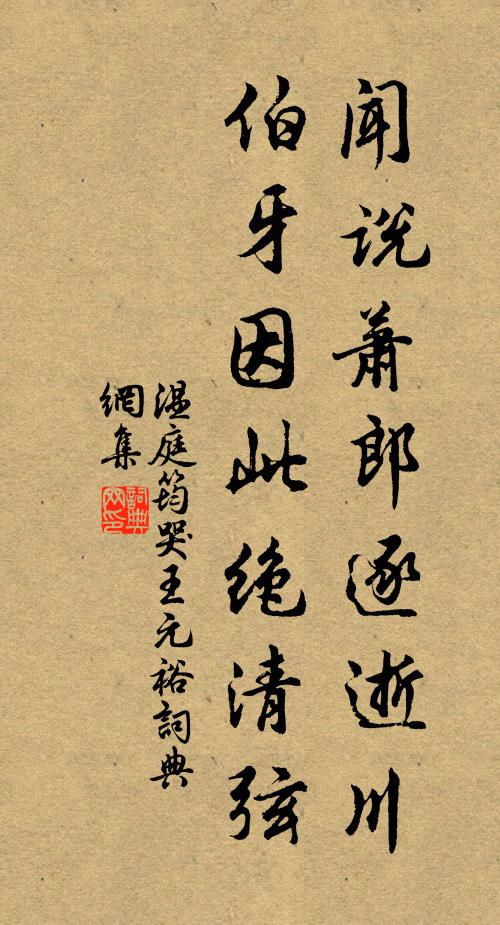 闻说萧郎逐逝川
伯牙因此绝清弦
温庭筠哭王元裕詞典
網集
詞典
网印